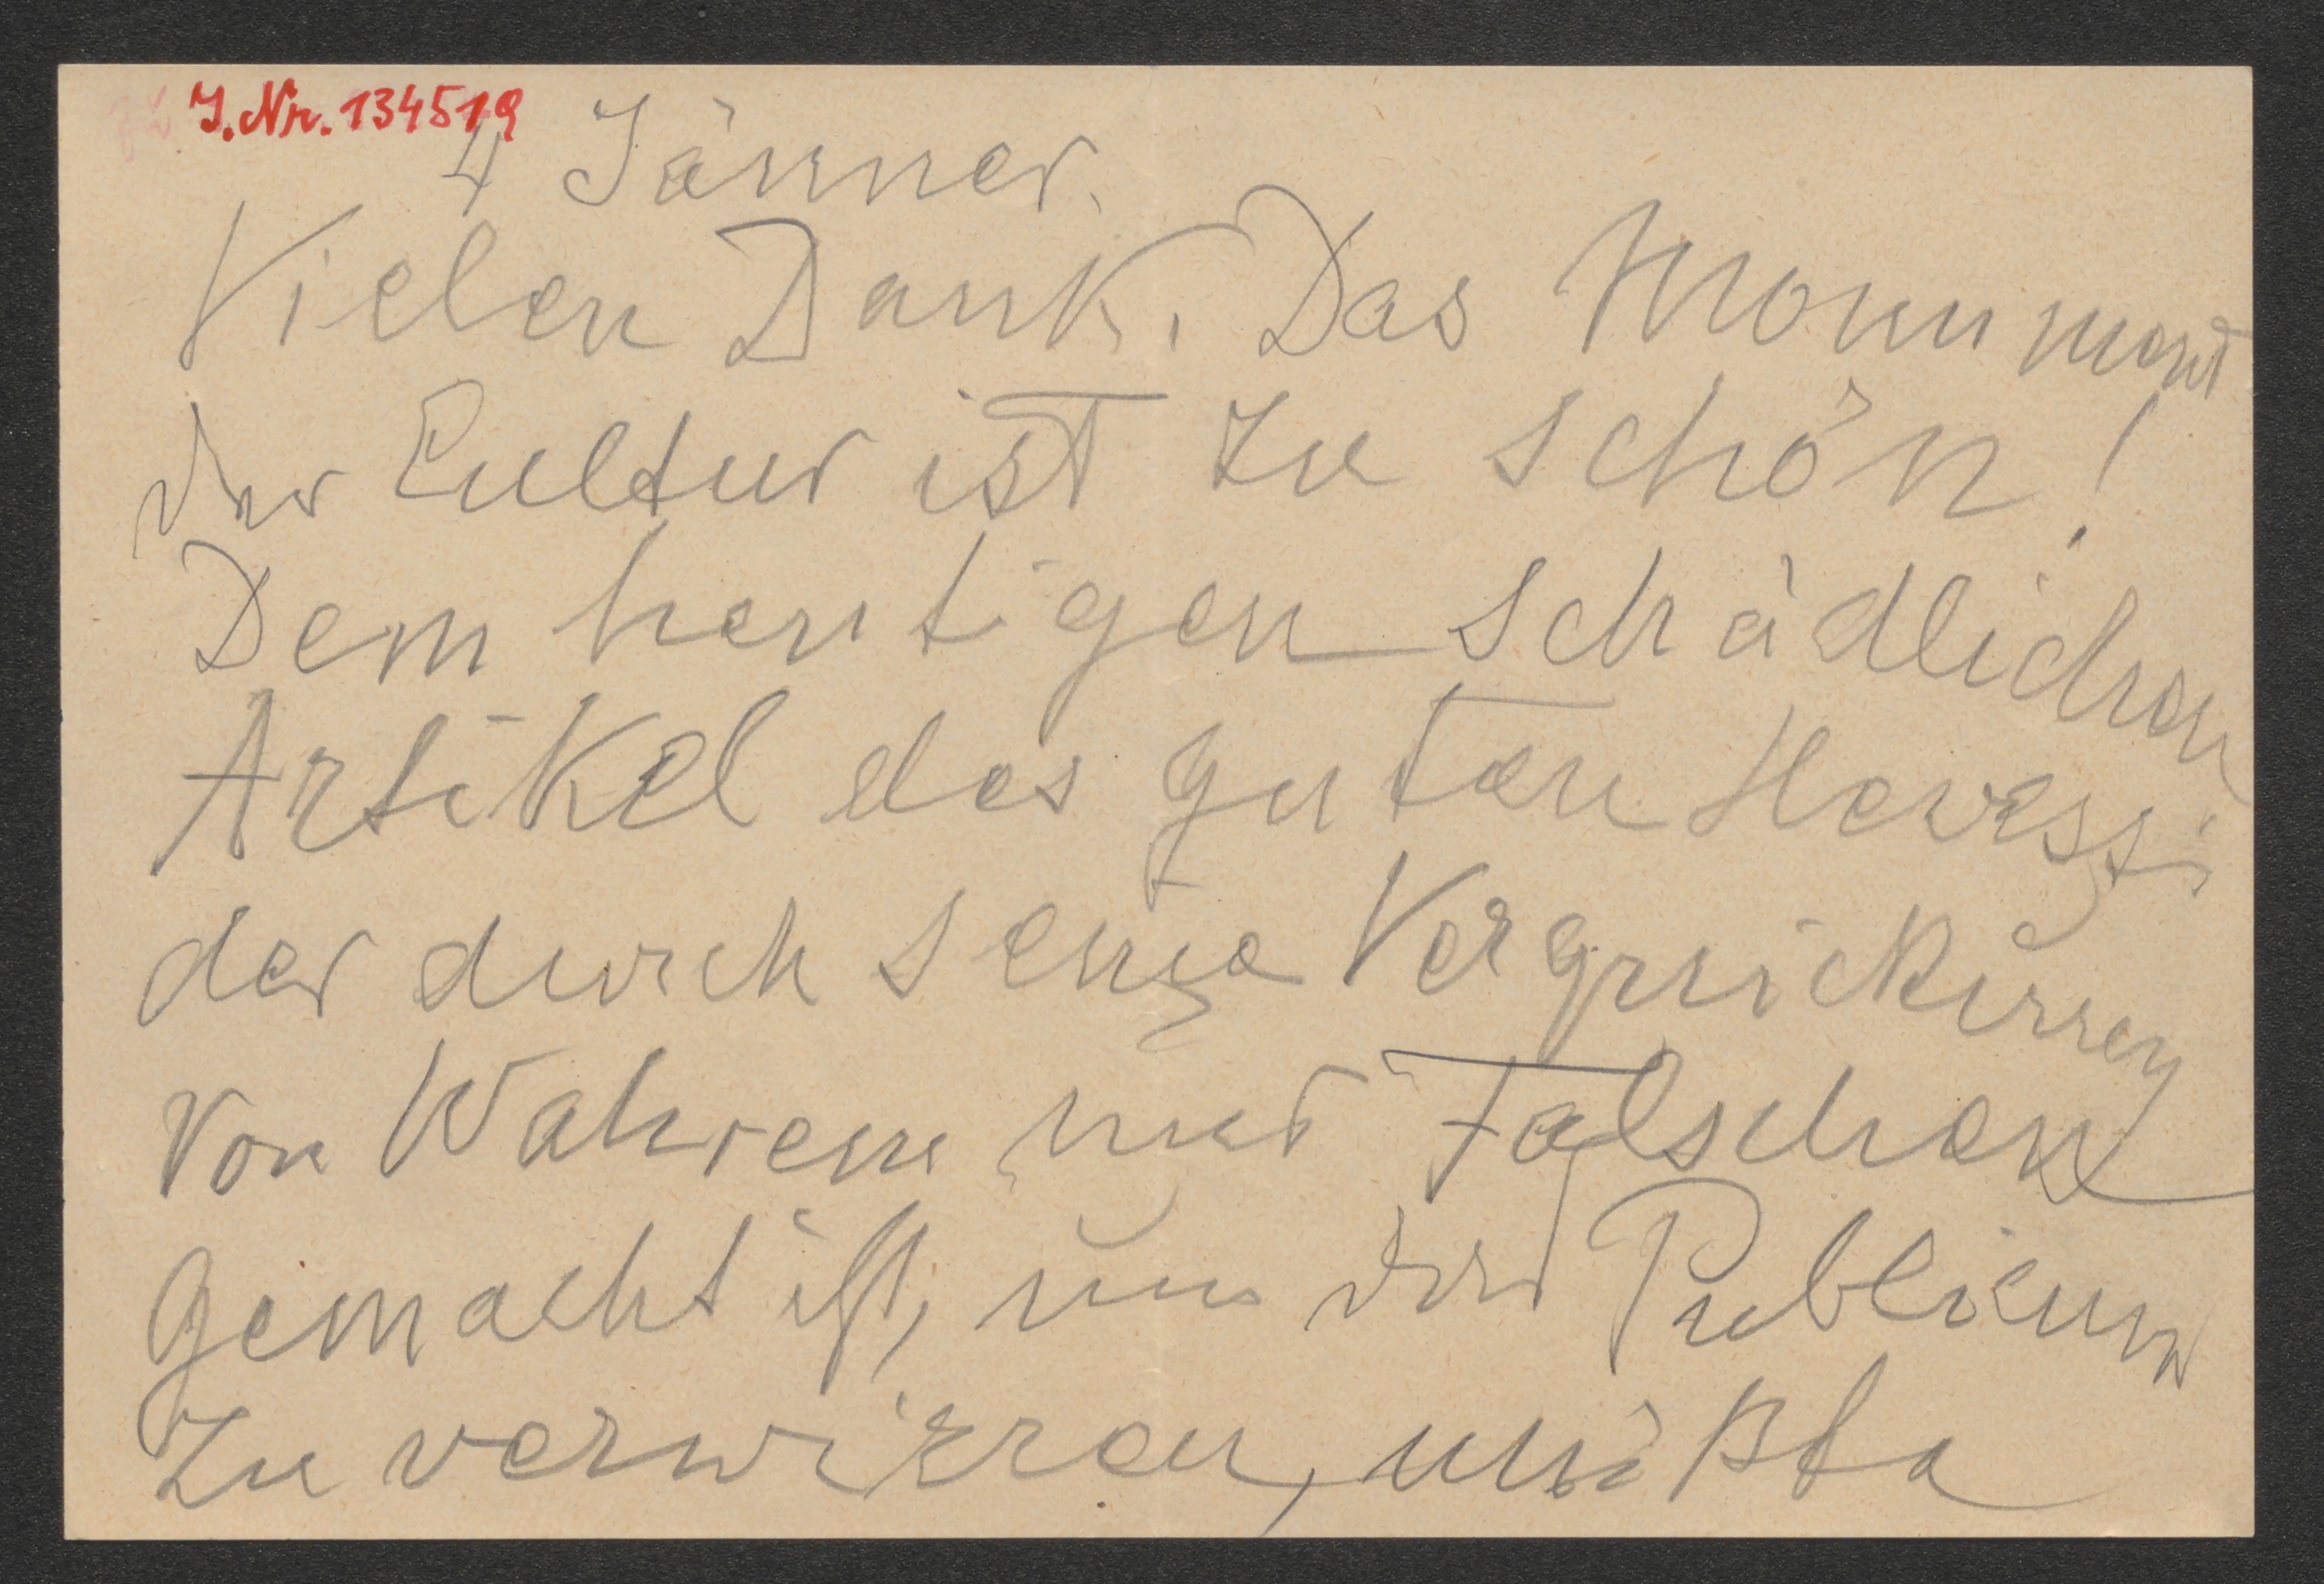 J.Nr. 134519
4 Jänner.
Vielen Dank. Das Monument
der Cultur ist zu schön!
Dem heutigen schädlichen
Artikel des guten Hevesi
der durch seine Verquickung
von Wahrem und Falschem
gemacht ist, um das Publicum
zu verwirren, müßte